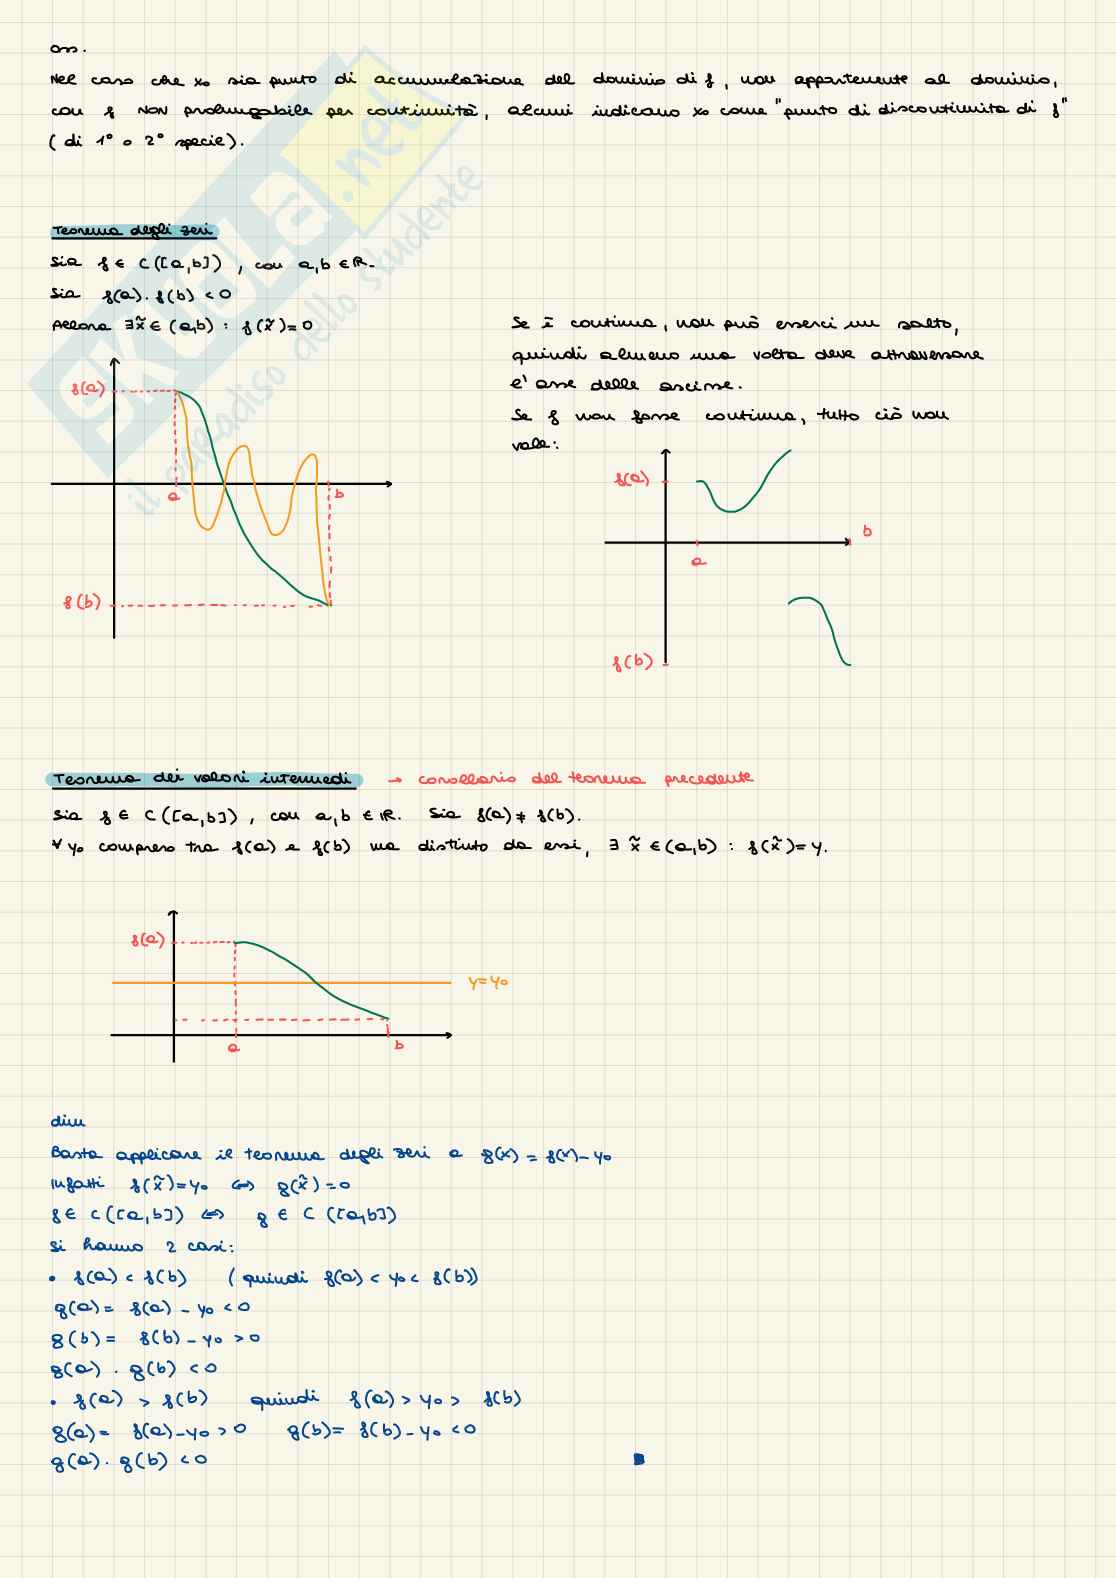 oss.
Nel caso che x₀ sia punto di accumulazione del dominio di f, non appartenente al dominio,
con f NON prolungabile per continuità, alcuni indicano x₀ come "punto di discontinuità di f"
(di 1° o 2° specie).
Teorema degli zeri
Sia f ∈ C([a,b]), con a,b ∈ ℝ.
Sia f(a)·f(b) < 0
Allora ∃x̃ ∈ (a,b) : f(x̃) = 0
f(a)
a
b
f(b)
Se è continua, non può esserci un salto,
quindi almeno una volta deve attraversare
l'asse delle ascisse.
Se f non fosse continua, tutto ciò non
vale:
f(a)
b
a
f(b)
Teorema dei valori intermedi → corollario del teorema precedente
Sia f ∈ C([a,b]), con a,b ∈ ℝ. Sia f(a) ≠ f(b).
∀ y₀ compreso tra f(a) e f(b) ma distinto da essi, ∃ x̃ ∈ (a,b) : f(x̃) = y.
f(a)
y=y₀
a
b
dim
Basta applicare il teorema degli zeri a g(x) = f(x) - y₀
Infatti f(x̃)=y₀ ⟺ g(x̃)=0
f ∈ C([a,b]) ⟺ g ∈ C([a,b])
Si hanno 2 casi:
• f(a) < f(b) (quindi f(a) < y₀ < f(b))
g(a) = f(a) - y₀ < 0
g(b) = f(b) - y₀ > 0
g(a) · g(b) < 0
• f(a) > f(b) quindi f(a) > y₀ > f(b)
g(a) = f(a) - y₀ > 0 g(b) = f(b) - y₀ < 0
g(a) · g(b) < 0 ■
SKUOLA.net
il paradiso dello studente